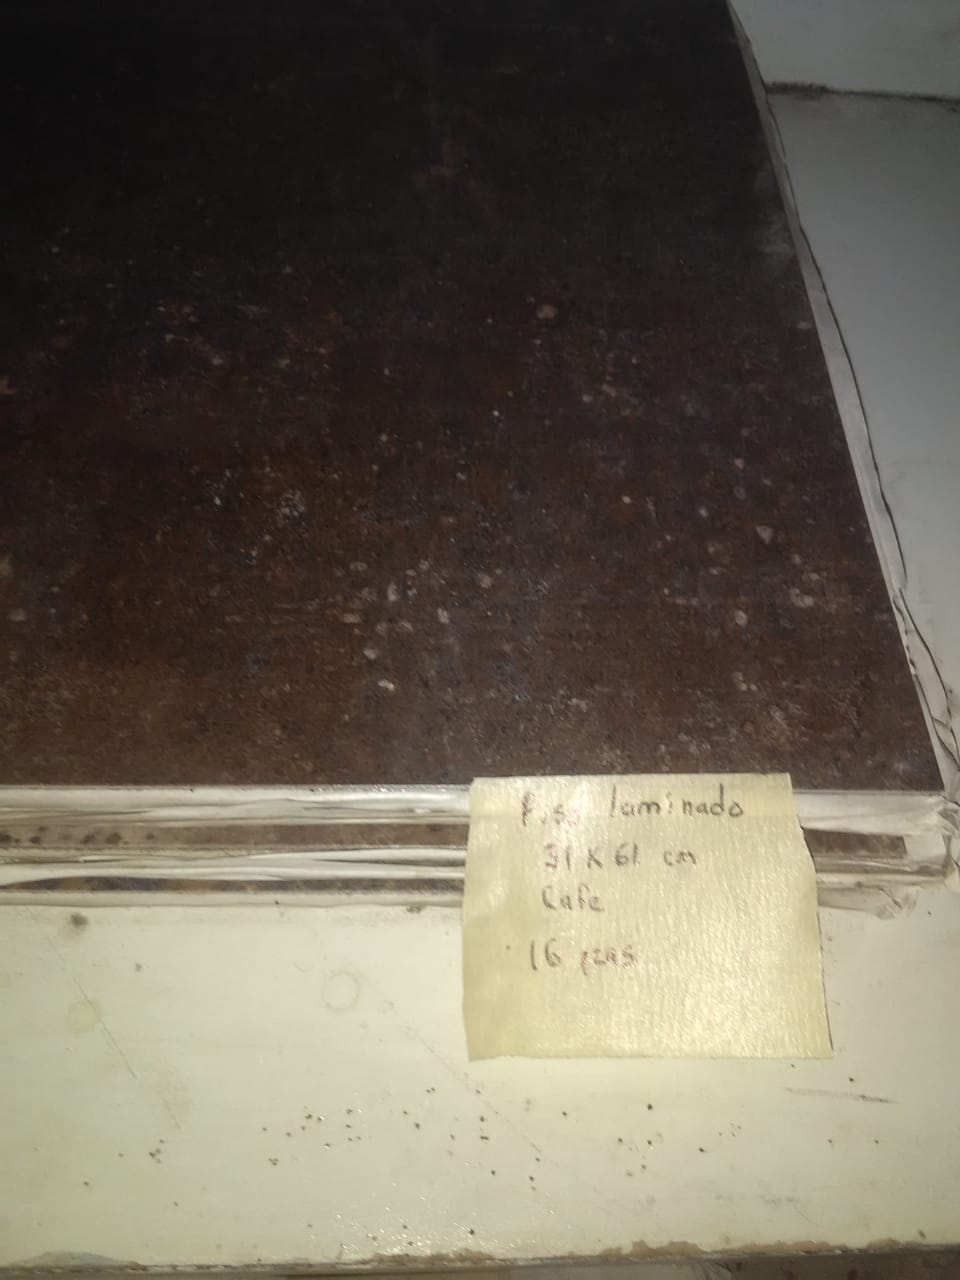 Piso laminado
31 x 61 cm
Cafe
16 pzas